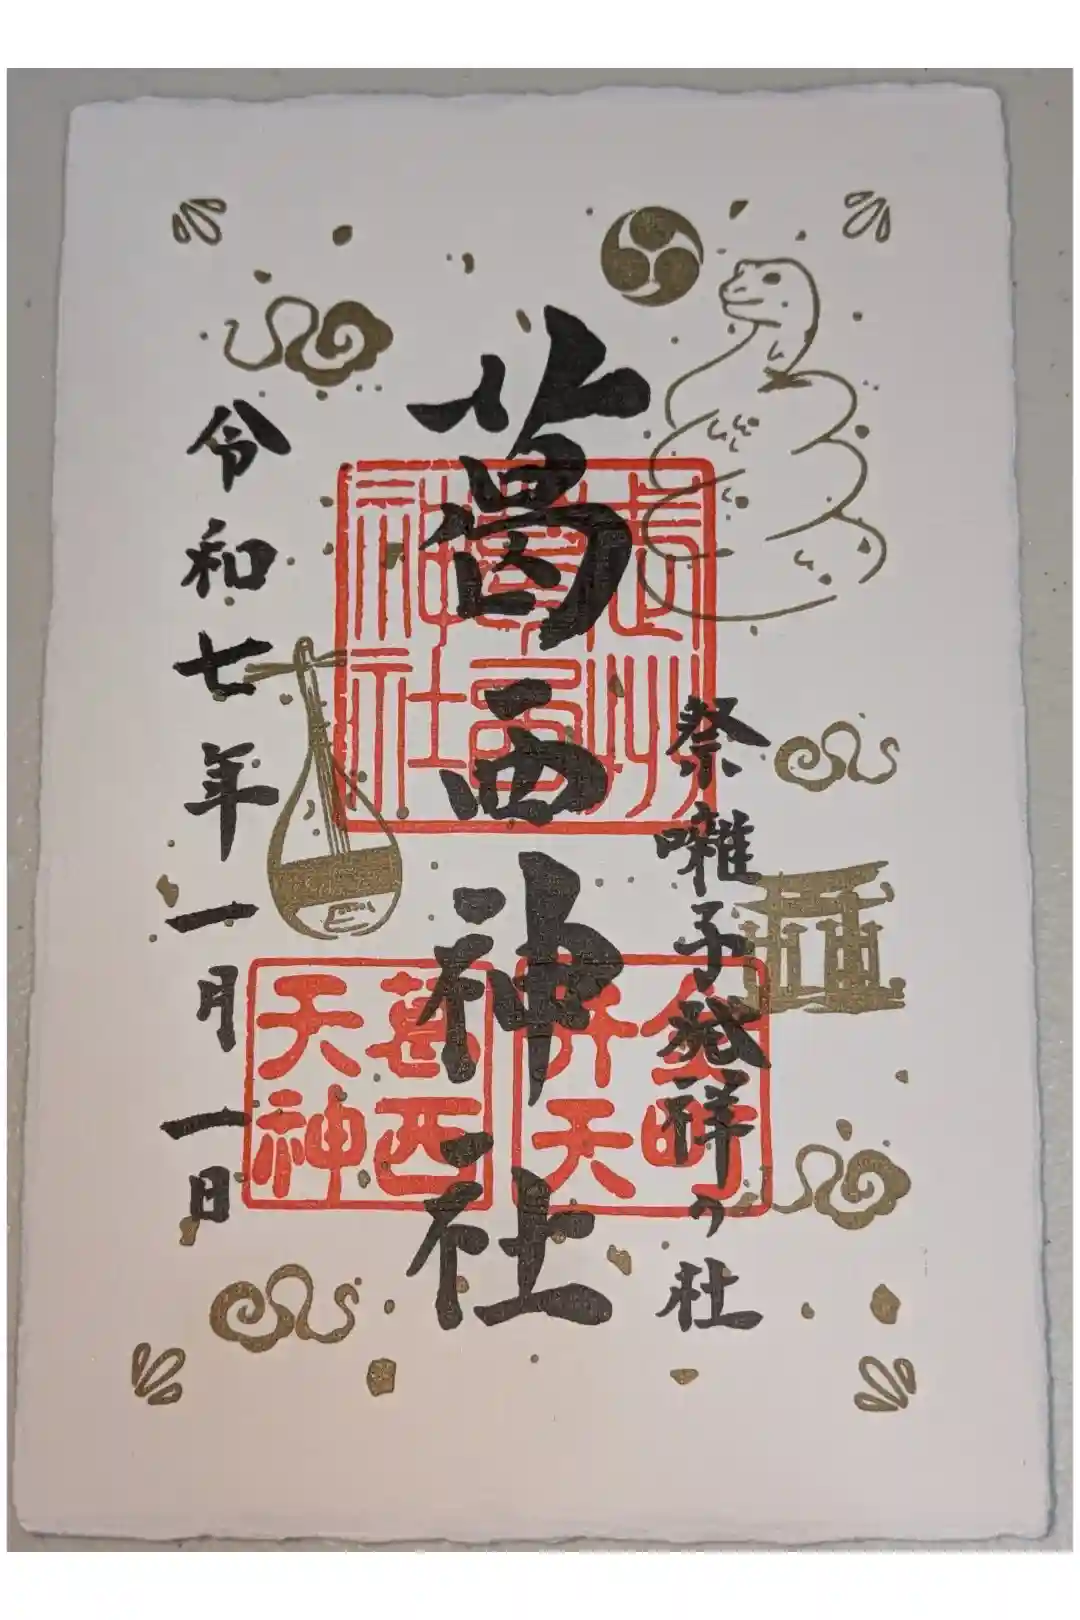 祭囃子発祥ノ社
葛西神社
令和七年一月一日
武州
葛西
神社
金町
弁天
葛西
天神